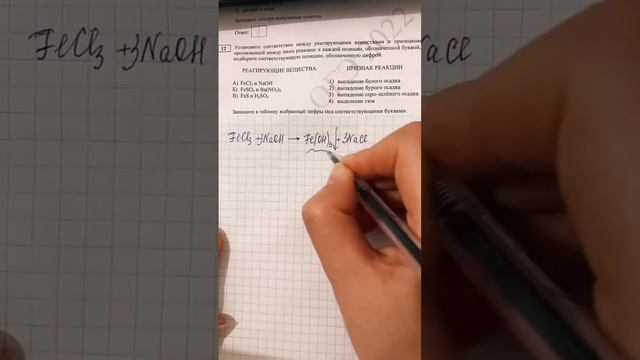 Запишите номера выбранных ответов.
Ответ:
12 Установите соответствие между реагирующими веществами и признаком
протекающей между ними реакции: к каждой позиции, обозначенной буквой,
подберите соответствующую позицию, обозначенную цифрой.
РЕАГИРУЮЩИЕ ВЕЩЕСТВА
А) FeCl₃ и NaOH
Б) FeSO₄ и Ba(NO₃)₂
В) FeS и H₂SO₄
ПРИЗНАК РЕАКЦИИ
1) выпадение белого осадка
2) выпадение бурого осадка
3) выпадение серо-зелёного осадка
4) выделение газа
Запишите в таблицу выбранные цифры под соответствующими буквами.
FeCl₃ + 3NaOH → Fe(OH)₃↓ + 3NaCl
FeCl₃ + 3NaOH
NaCl